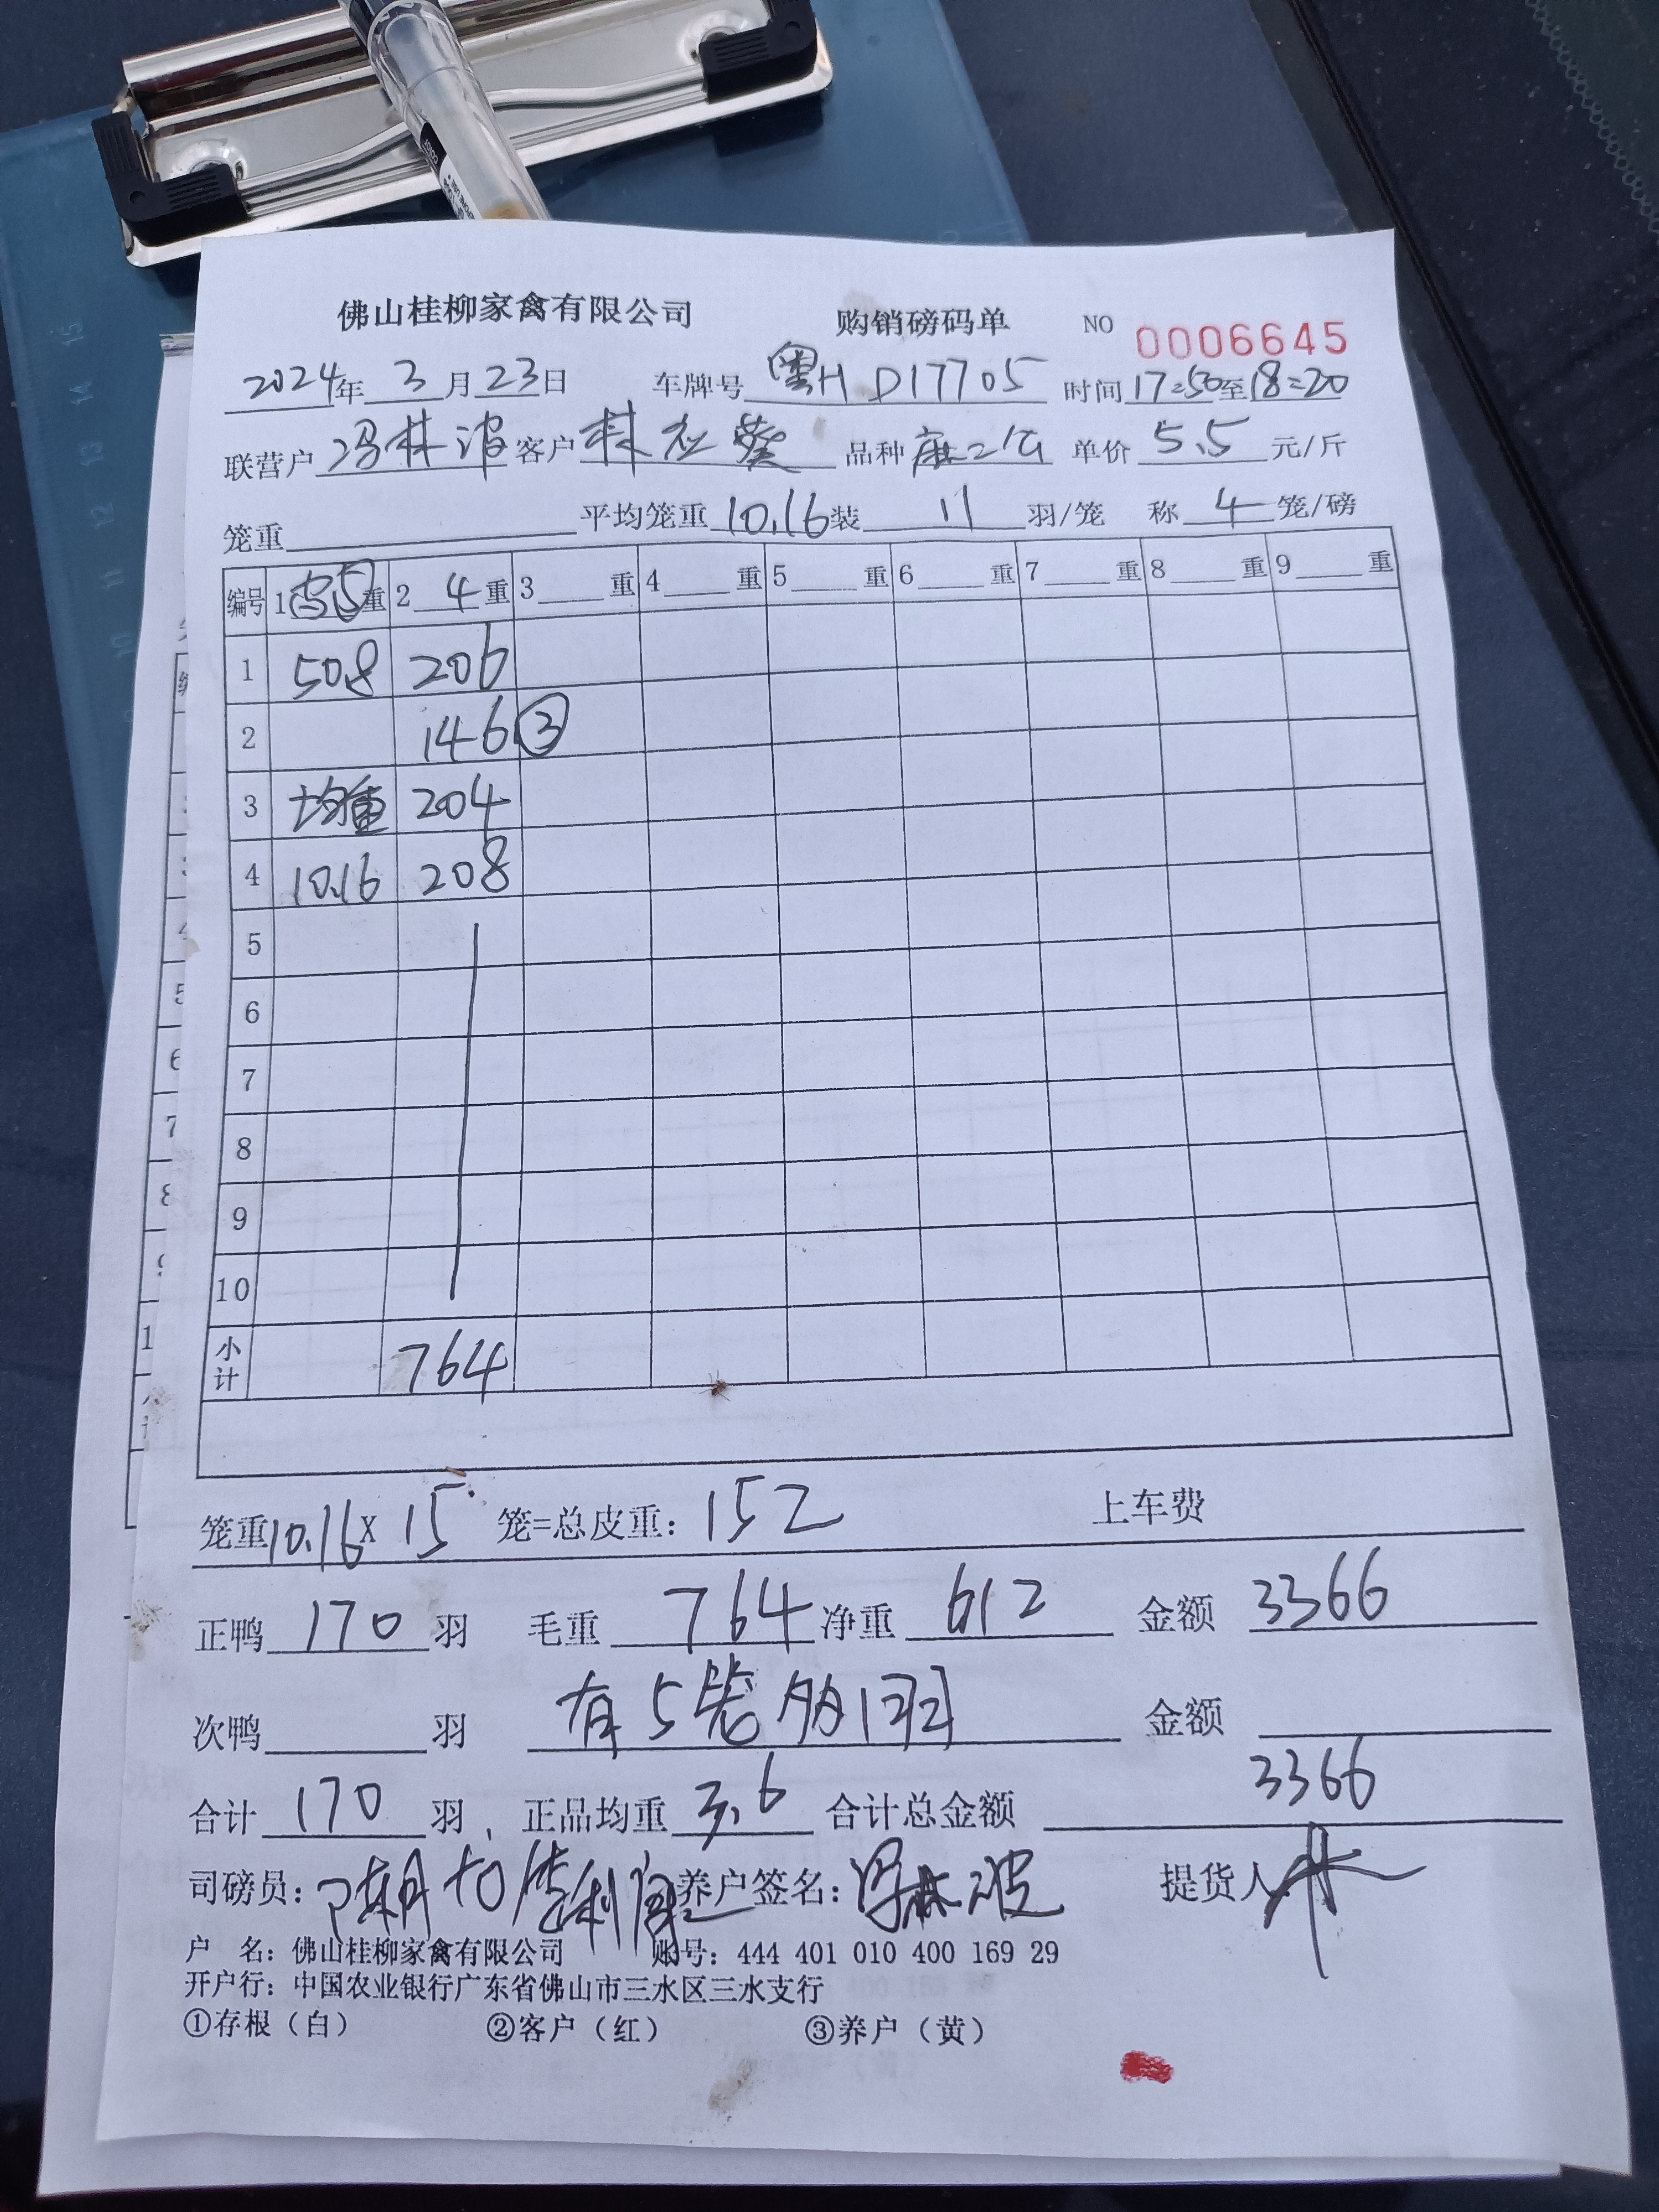 佛山桂柳家禽有限公司 购销磅码单 NO 0006645
2024年 3 月 23 日 车牌号 粤H D17705 时间 17:50 至 18:20
联营户 冯林波 客户 林应葵 品种 麻二公 单价 5.5 元/斤
笼重 平均笼重 10.16 装 11 羽/笼 称 4 笼/磅
编号 1 5 重 2 4 重 3 重 4 重 5 重 6 重 7 重 8 重 9 重
1 50.8 206
2 146 ③
3 均重 204
4 10.16 208
5
6
7
8
9
10
小计 764
笼重 10.16 X 15 笼=总皮重: 152 上车费
正鸭 170 羽 毛重 764 净重 612 金额 3366
次鸭 羽 有5笼多1羽 金额
合计 170 羽, 正品均重 3.6 合计总金额 3366
司磅员: 养户签名: 冯林波 提货人:
户 名: 佛山桂柳家禽有限公司 账号: 444 401 010 400 169 29
开户行: 中国农业银行广东省佛山市三水区三水支行
①存根(白) ②客户(红) ③养户(黄)